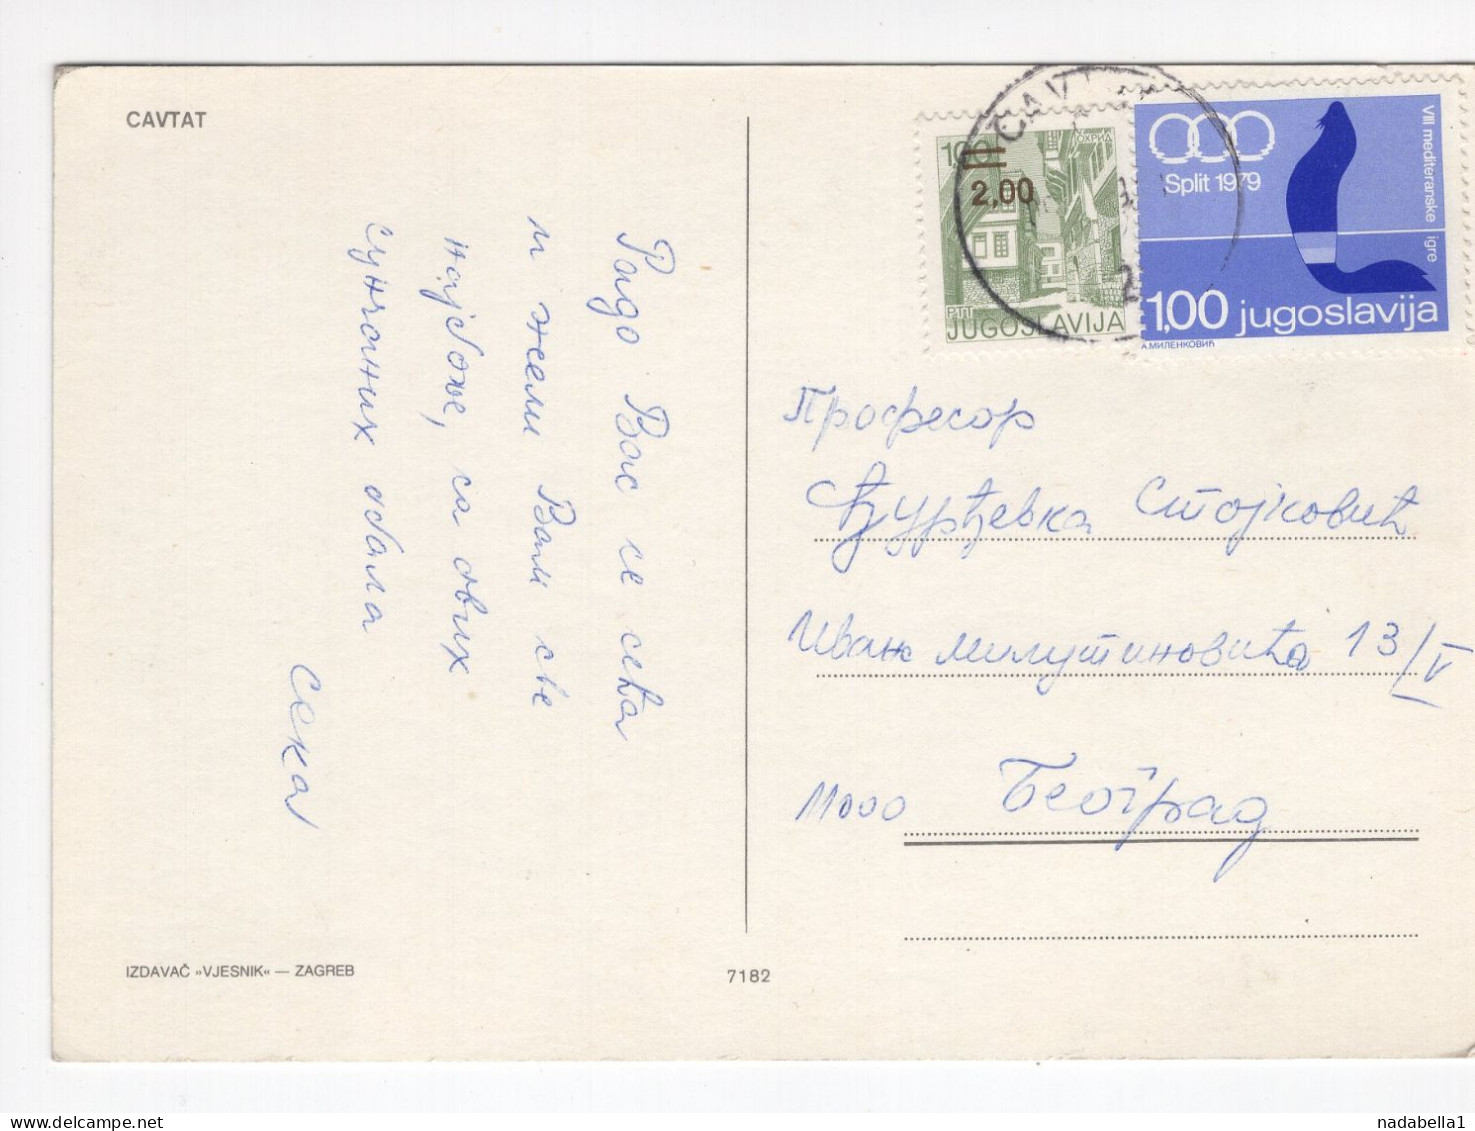 CAVTAT
Радо Вас се сећа
и жели Вам све
најбоље, са ових
сунчаних обала
Сека
IZDAVAČ »VJESNIK« — ZAGREB
7182
CAVT
1,00
ОХРИД
2,00
PTT
JUGOSLAVIJA
Split 1979
VIII mediteranske igre
1,00 jugoslavija
А.МИЛЕНКОВИЋ
Професор
Ђурђевка Стојковић
Иван Милутиновића 13/V
11000 Београд
nadabella1